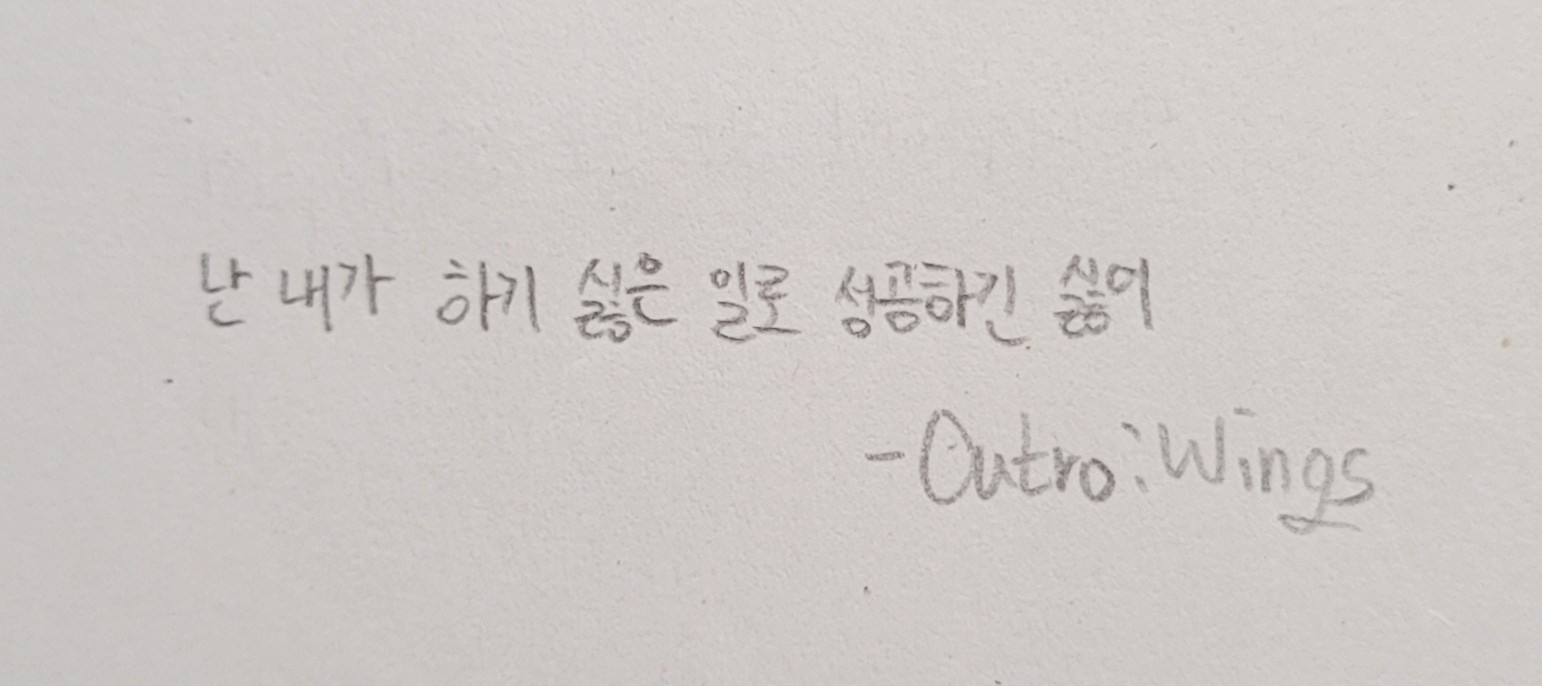 난 내가 하기 싫은 일로 성공하긴 싫어
-Outro:Wings